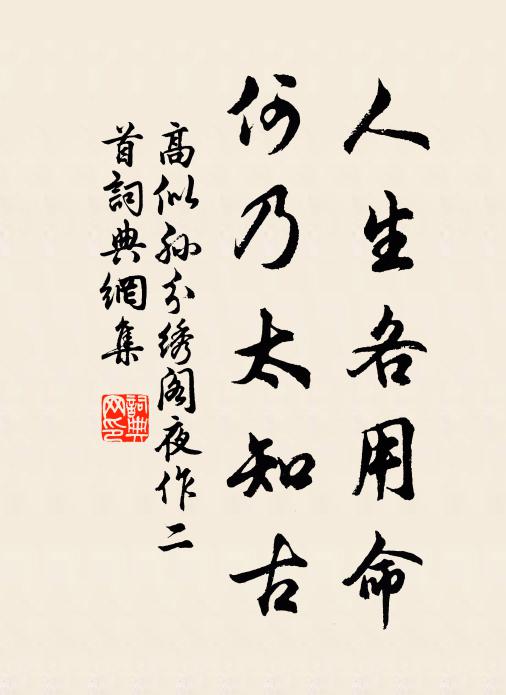 人生各用命
何乃太知古
高似孙分绣阁夜作二
首詞典網集
詞典
网印